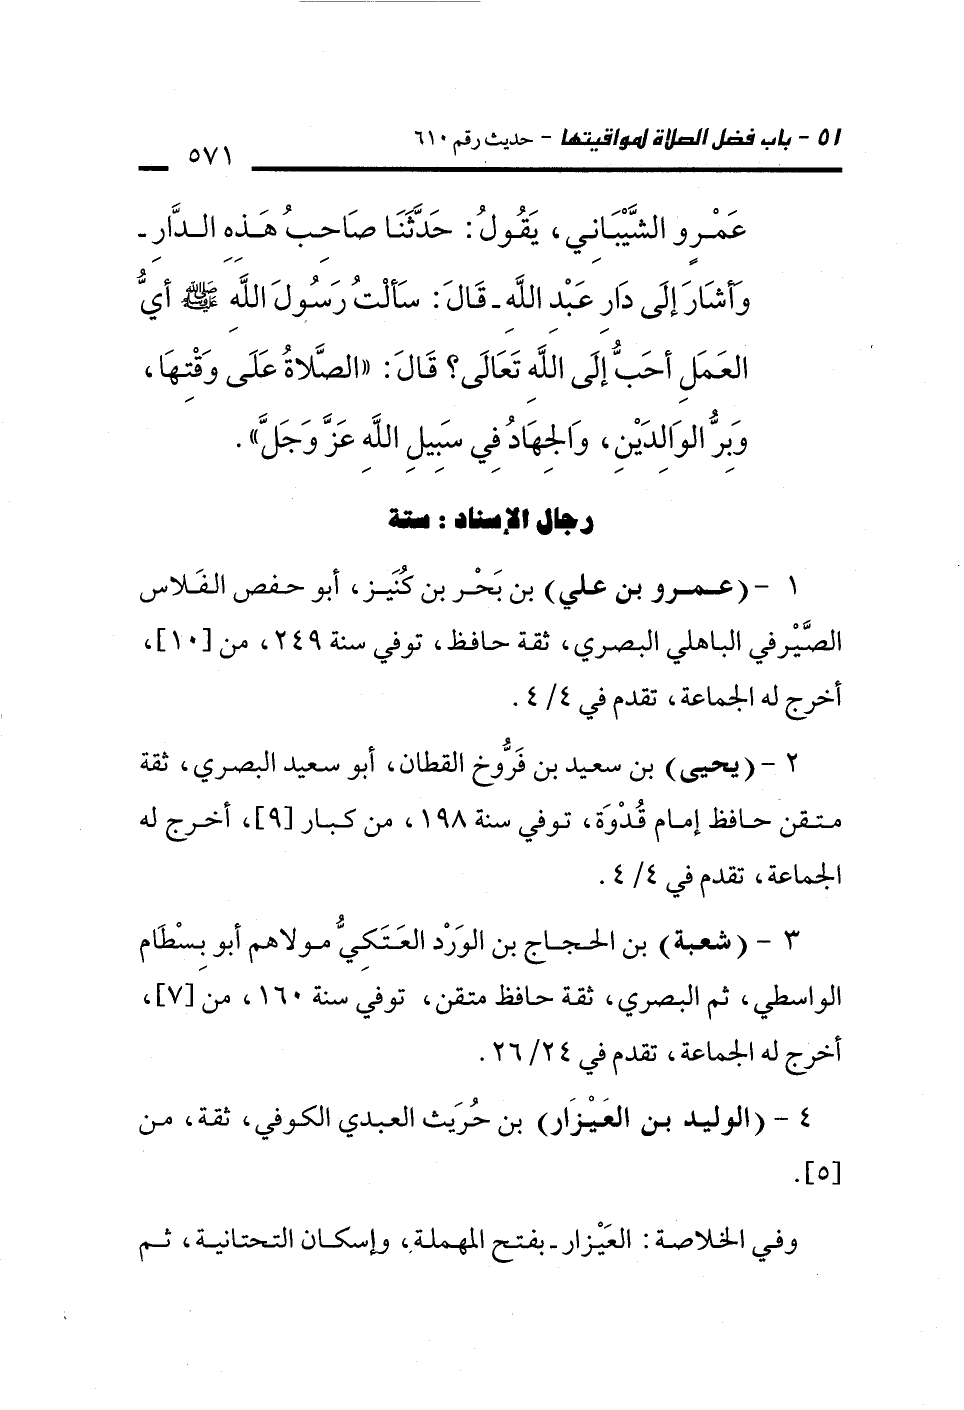 ٥١ - باب فضل الصلاة لمواقيتها - حديث رقم ٦١٠
٥٧١
عَمْرٍو الشَّيْبَانِي، يَقُولُ: حَدَّثَنَا صَاحِبُ هَذِهِ الدَّارِ -
وَأشَارَ إلَى دَارِ عَبْدِ اللَّهِ - قَالَ: سَألْتُ رَسُولَ اللَّهِ ﷺ أيُّ
العَمَلِ أحَبُّ إلَى اللَّهِ تَعَالَى؟ قَالَ: «الصَّلاةُ عَلَى وَقْتِهَا،
وَبِرُّ الوَالِدَيْنِ، وَالجِهَادُ فِي سَبِيلِ اللَّهِ عَزَّ وَجَلَّ».
رجال الإسناد: ستة
١ - (عمرو بن علي) بن بَحْر بن كُنَيز، أبو حفص الفَلاس
الصَّيْرفي الباهلي البصري، ثقة حافظ، توفي سنة ٢٤٩، من [١٠]،
أخرج له الجماعة، تقدم في ٤/ ٤ .
٢ - (يحيى) بن سعيد بن فَرُّوخ القطان، أبو سعيد البصري، ثقة
متقن حافظ إمام قُدْوَة، توفي سنة ١٩٨، من كبار [٩]، أخرج له
الجماعة، تقدم في ٤/ ٤ .
٣ - (شعبة) بن الحجاج بن الوَرْد العَتَكِيُّ مولاهم أبو بِسْطَام
الواسطي، ثم البصري، ثقة حافظ متقن، توفي سنة ١٦٠، من [٧]،
أخرج له الجماعة، تقدم في ٢٤/ ٢٦.
٤ - (الوليد بن العَيْزَار) بن حُرَيث العبدي الكوفي، ثقة، من
[٥].
وفي الخلاصة: العَيْزار - بفتح المهملة، وإسكان التحتانية، ثم